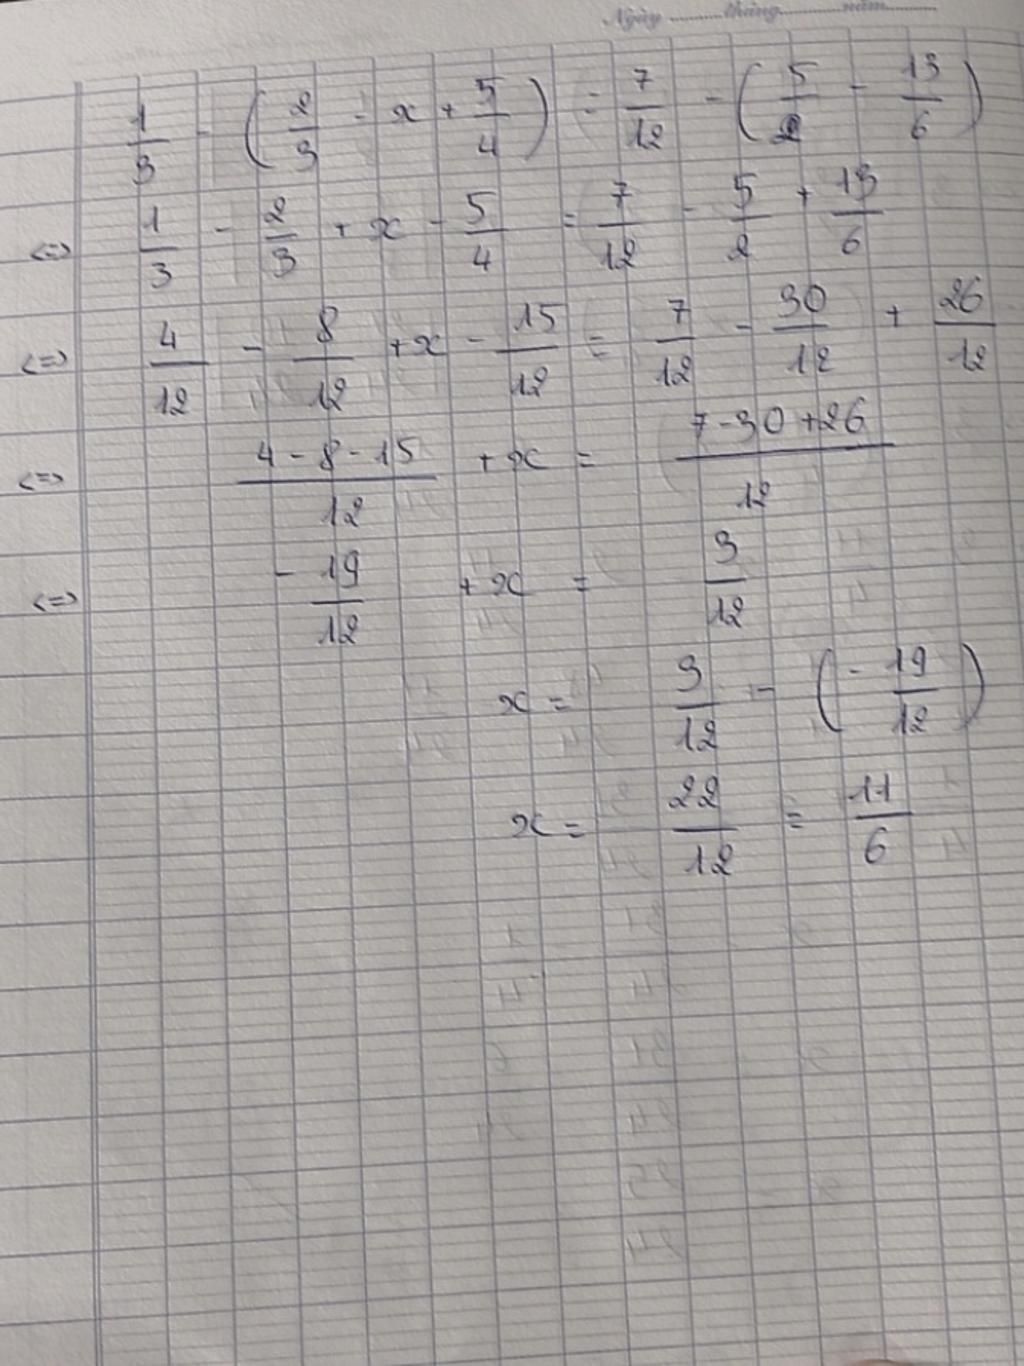 Ngày ........... tháng ........... năm ...........
1/3 - (2/3 - x + 5/4) = 7/12 - (5/2 - 13/6)
<=> 1/3 - 2/3 + x - 5/4 = 7/12 - 5/2 + 13/6
<=> 4/12 - 8/12 + x - 15/12 = 7/12 - 30/12 + 26/12
<=> (4 - 8 - 15)/12 + x = (7 - 30 + 26)/12
<=> - 19/12 + x = 3/12
x = 3/12 - (- 19/12)
x = 22/12 = 11/6